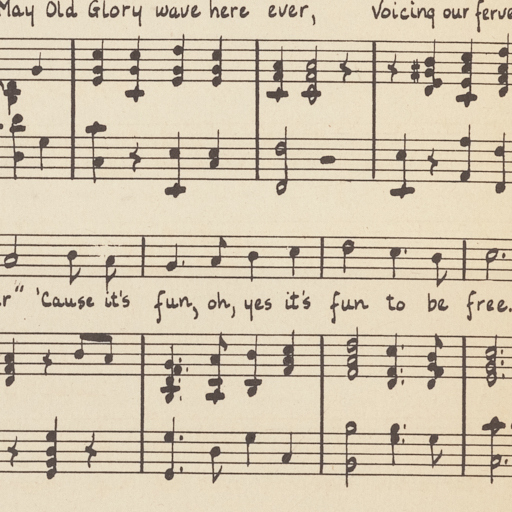 May Old Glory wave here ever, Voicing our ferve
r" 'Cause it's fun, oh, yes it's fun to be free.